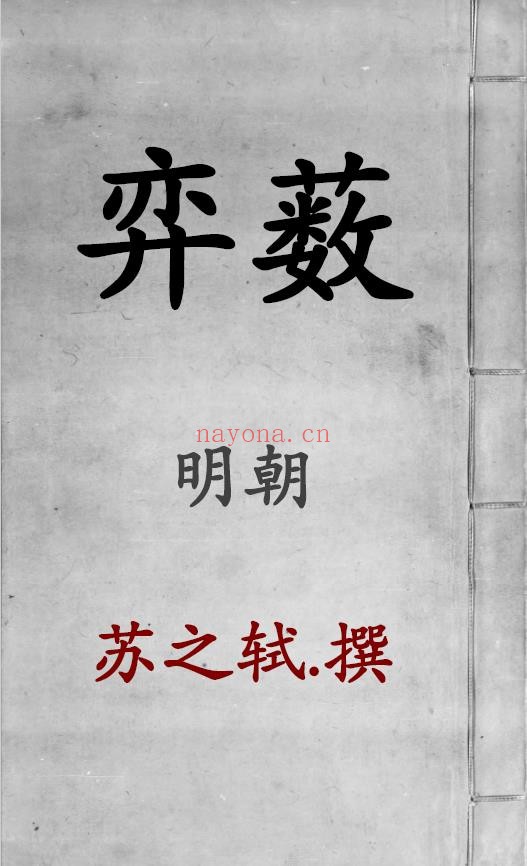 弈薮
nayona.cn
明朝
苏之轼.撰